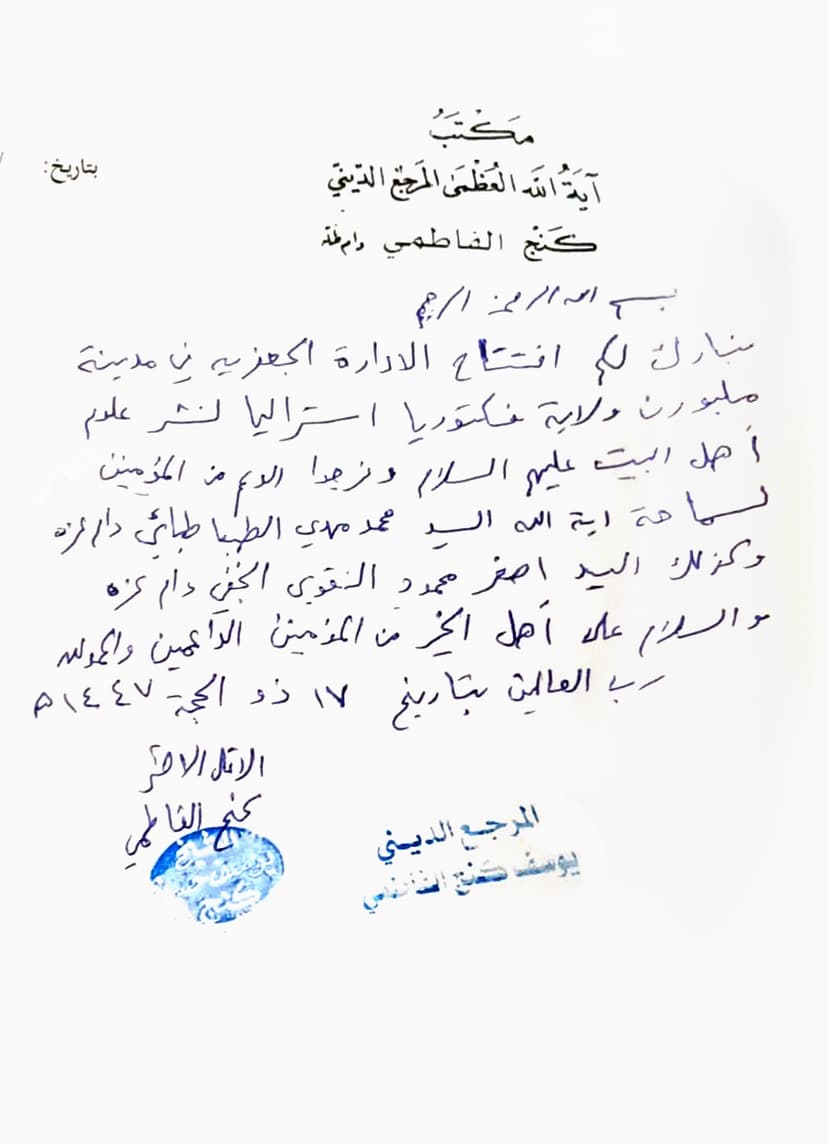 مَكْتَبُ
آيَةُ اللَّه العُظْمَىٰ المَرْجِعْ الدِّينيّ
كَنْجْ الفاطمي دام ظله
بتاريخ:
بسم الله الرحمن الرحيم
نبارك لكم افتتاح الادارة الجعفريه في مدينة
ملبورن ولاية فكتوريا استراليا لنشر علوم
أهل البيت عليهم السلام ونرجوا الدعم من المؤمنين
لسماحة اية الله السيد محمد مهدي الطباطبائي دام عزه
وكذلك السيد اصغر محمود النقوي النجفي دام عزه
والسلام على أهل الخير من المؤمنين الداعمين والحمد لله
رب العالمين بتاريخ ١٧ ذو الحجة ١٤٤٧ ه
الاقل الاحقر
كنج الفاطمي
المرجع الديني
يوسف كنج الفاطمي